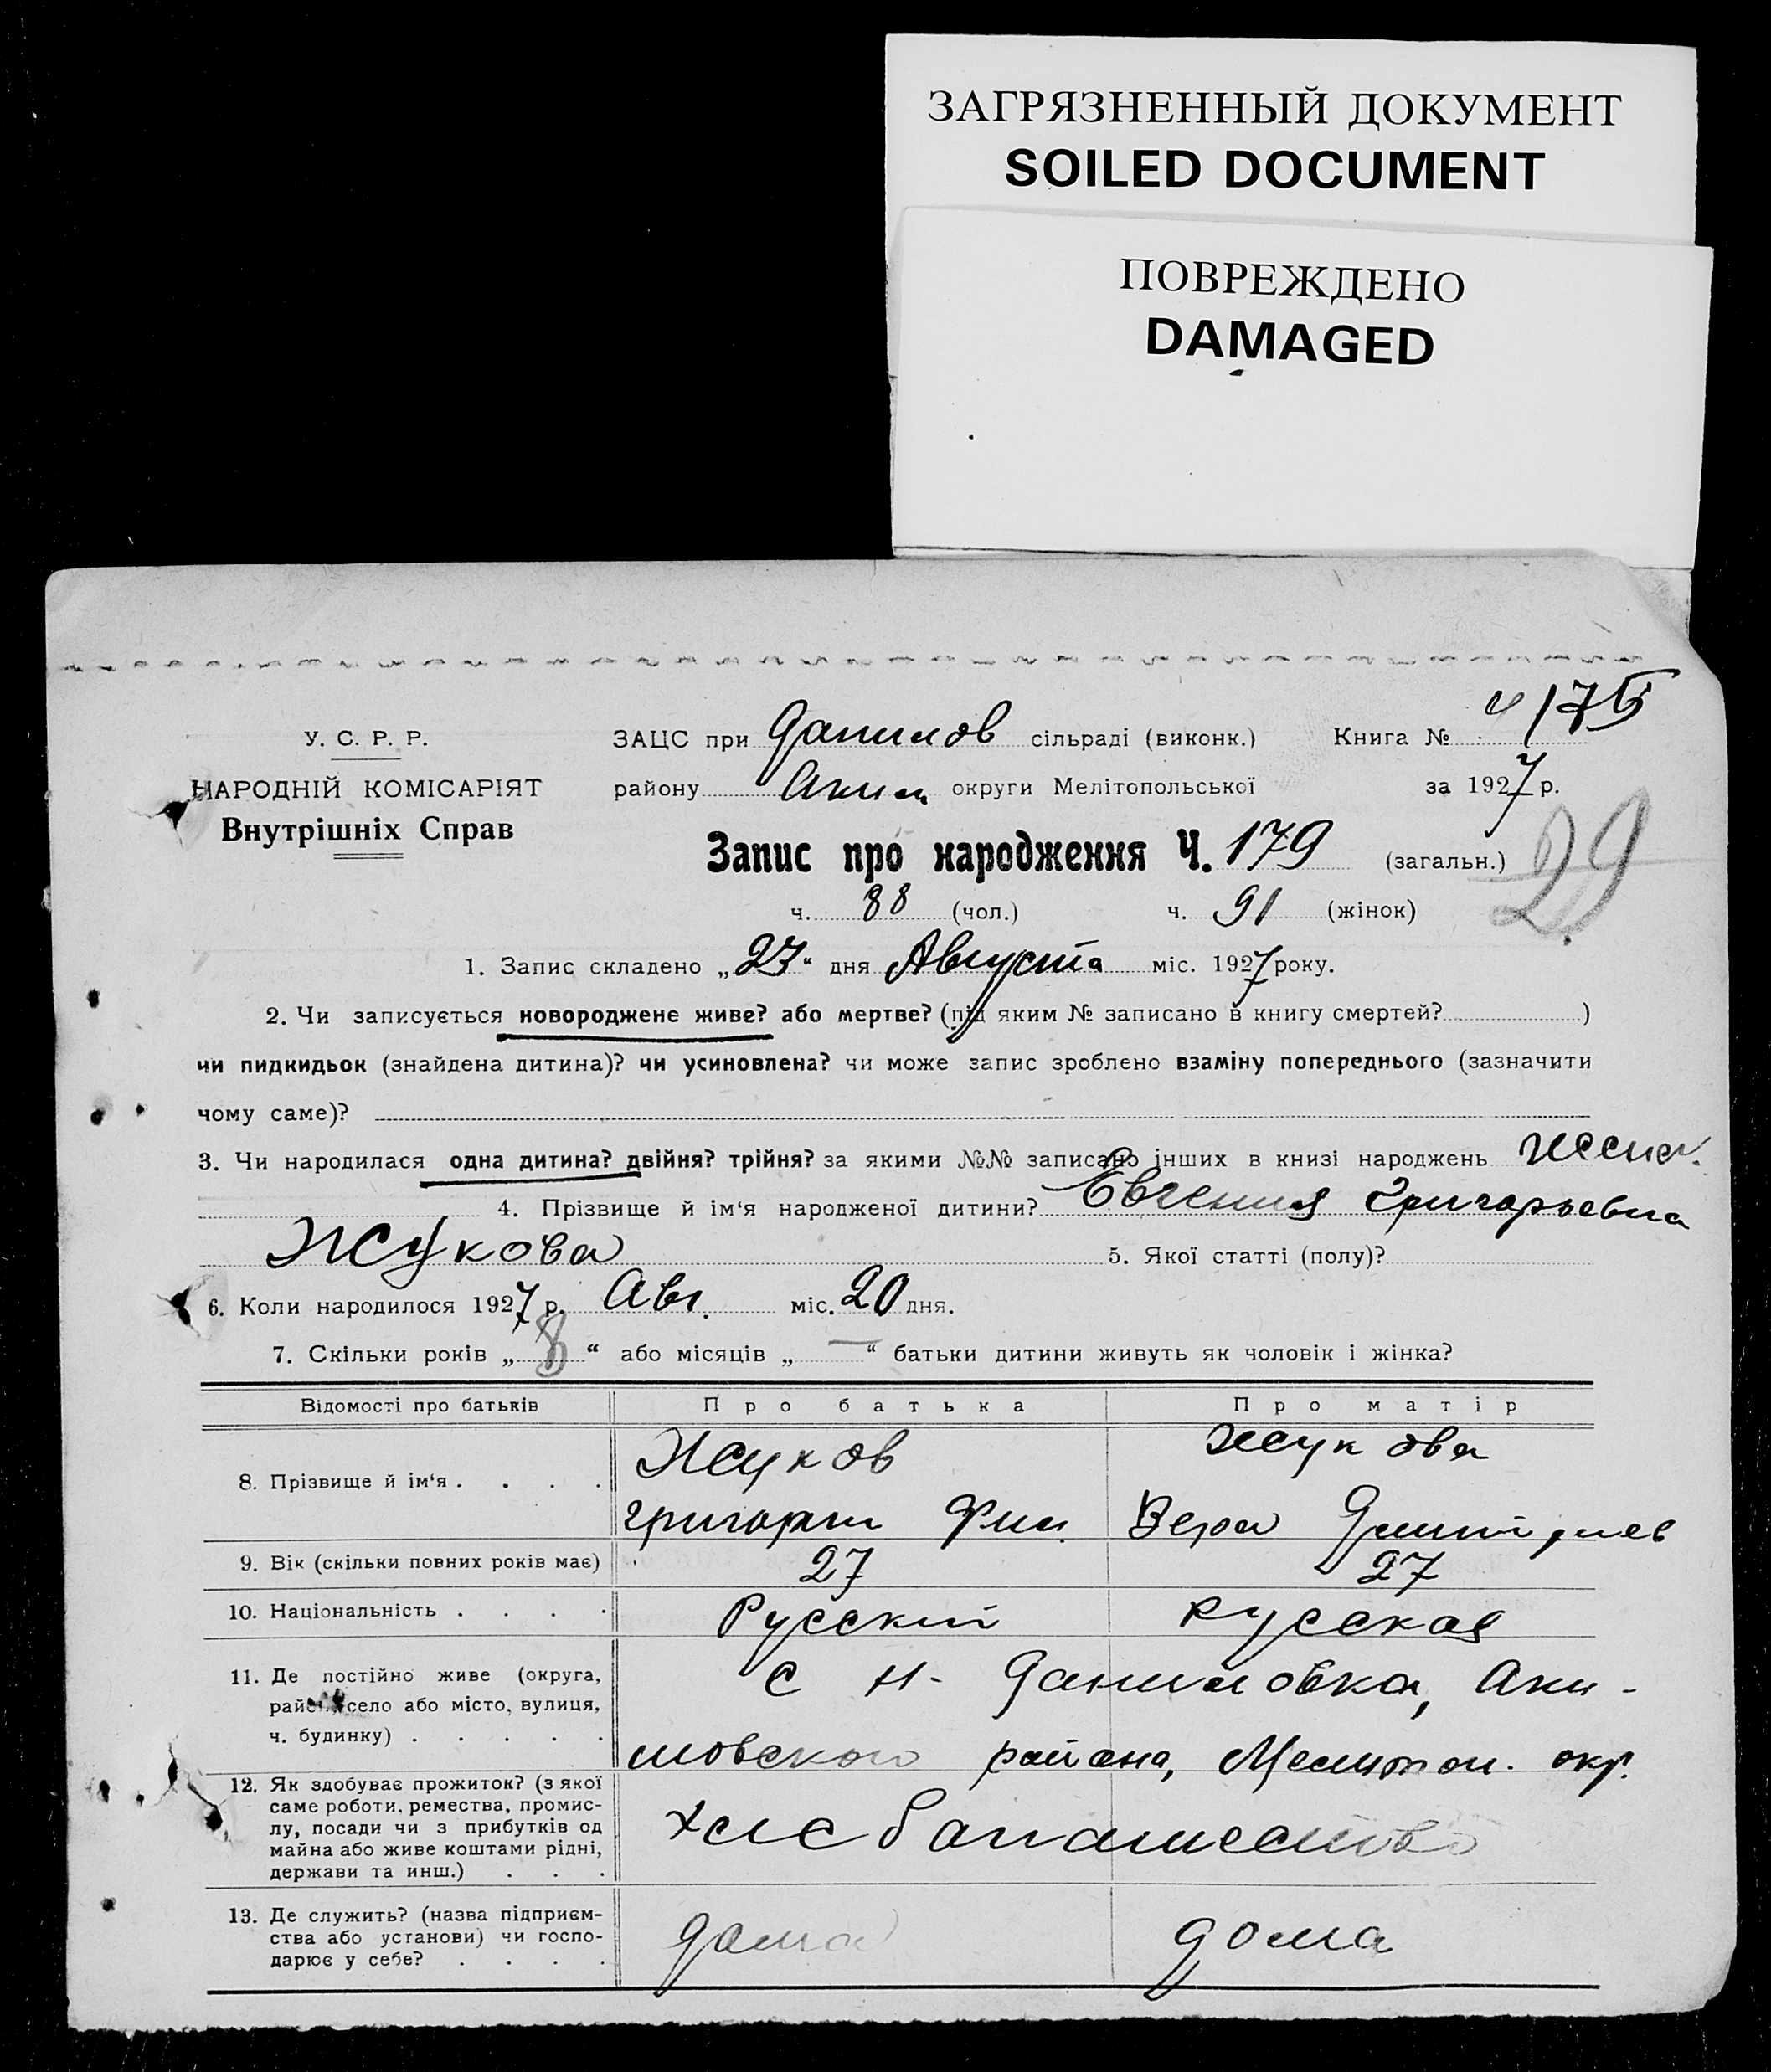 ЗАГРЯЗНЕННЫЙ ДОКУМЕНТ
SOILED DOCUMENT
ПОВРЕЖДЕНО
DAMAGED
У. С. Р. Р.
НАРОДНІЙ КОМІСАРІЯТ
Внутрішніх Справ
ЗАЦС при Данилов сільраді (виконк.) Книга №
району Аким округи Мелітопольської за 1927 р.
Запис про народження Ч. 179 (загальн.) 29
ч. 88 (чол.) ч. 91 (жінок)
1. Запис складено „27“ дня Августа міс. 1927 року.
2. Чи записується новороджене живе? або мертве? (під яким № записано в книгу смертей? )
чи пидкидьок (знайдена дитина)? чи усиновлена? чи може запис зроблено взаміну попереднього (зазначити
чому саме)?
3. Чи народилася одна дитина? двійня? трійня? за якими №№ записано інших в книзі народжень женск.
4. Прізвище й ім'я народженої дитини? Евгения Григорьевна
Жукова 5. Якої статті (полу)?
6. Коли народилося 1927 р. Авг. міс. 20 дня.
7. Скільки років „8“ або місяців „—“ батьки дитини живуть як чоловік і жінка?
Відомості про батьків Про батька Про матір
8. Прізвище й ім'я . . . . Жуков Жукова
Григорий Фил. Вера Дмитриев
9. Вік (скільки повних років має) 27 27
10. Національність . . . . Русский русская
11. Де постійно живе (округа,
район, село або місто, вулиця,
ч. будинку) . . . . .
с Н- Даниловка, Аки-
мовского района, Мелитоп. окр.
12. Як здобуває прожиток? (з якої
саме роботи, ремества, промис-
лу, посади чи з прибутків од
майна або живе коштами рідні,
держави та инш.) . . .
хлебопашество
13. Де служить? (назва підприєм-
ства або установи) чи госпо-
дарює у себе? . . . .
дома дома